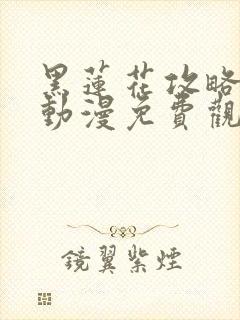 黑蓮花攻略
動漫免費觀
鏡翼紫煙